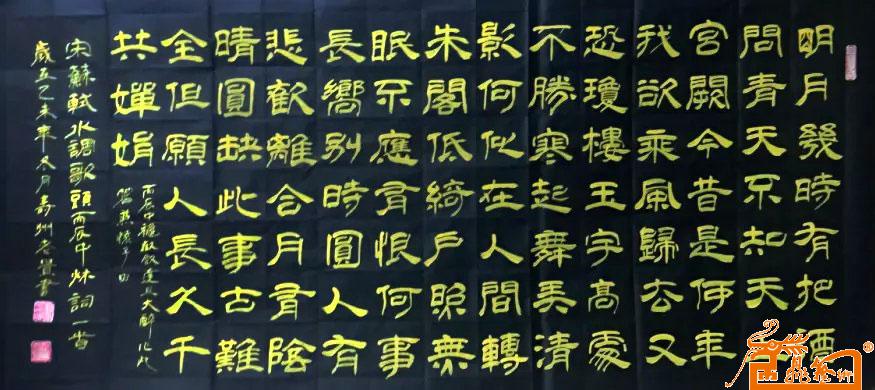 明月幾時有把酒
問青天不知天上
宮闕今昔是何年
我欲乘風歸去又
恐瓊樓玉宇高處
不勝寒起舞弄清
影何似在人間轉
朱閣低綺戶照無
眠不應有恨何事
長嚮別時圓人有
悲歡離合月有陰
晴圓缺此事古難
全但願人長久千
共嬋娟
丙辰中穐歡飲達旦大醉作此
篇兼懷子由
宋蘇軾水調歌頭丙辰中秌詞一首
乙未年冬月青州書